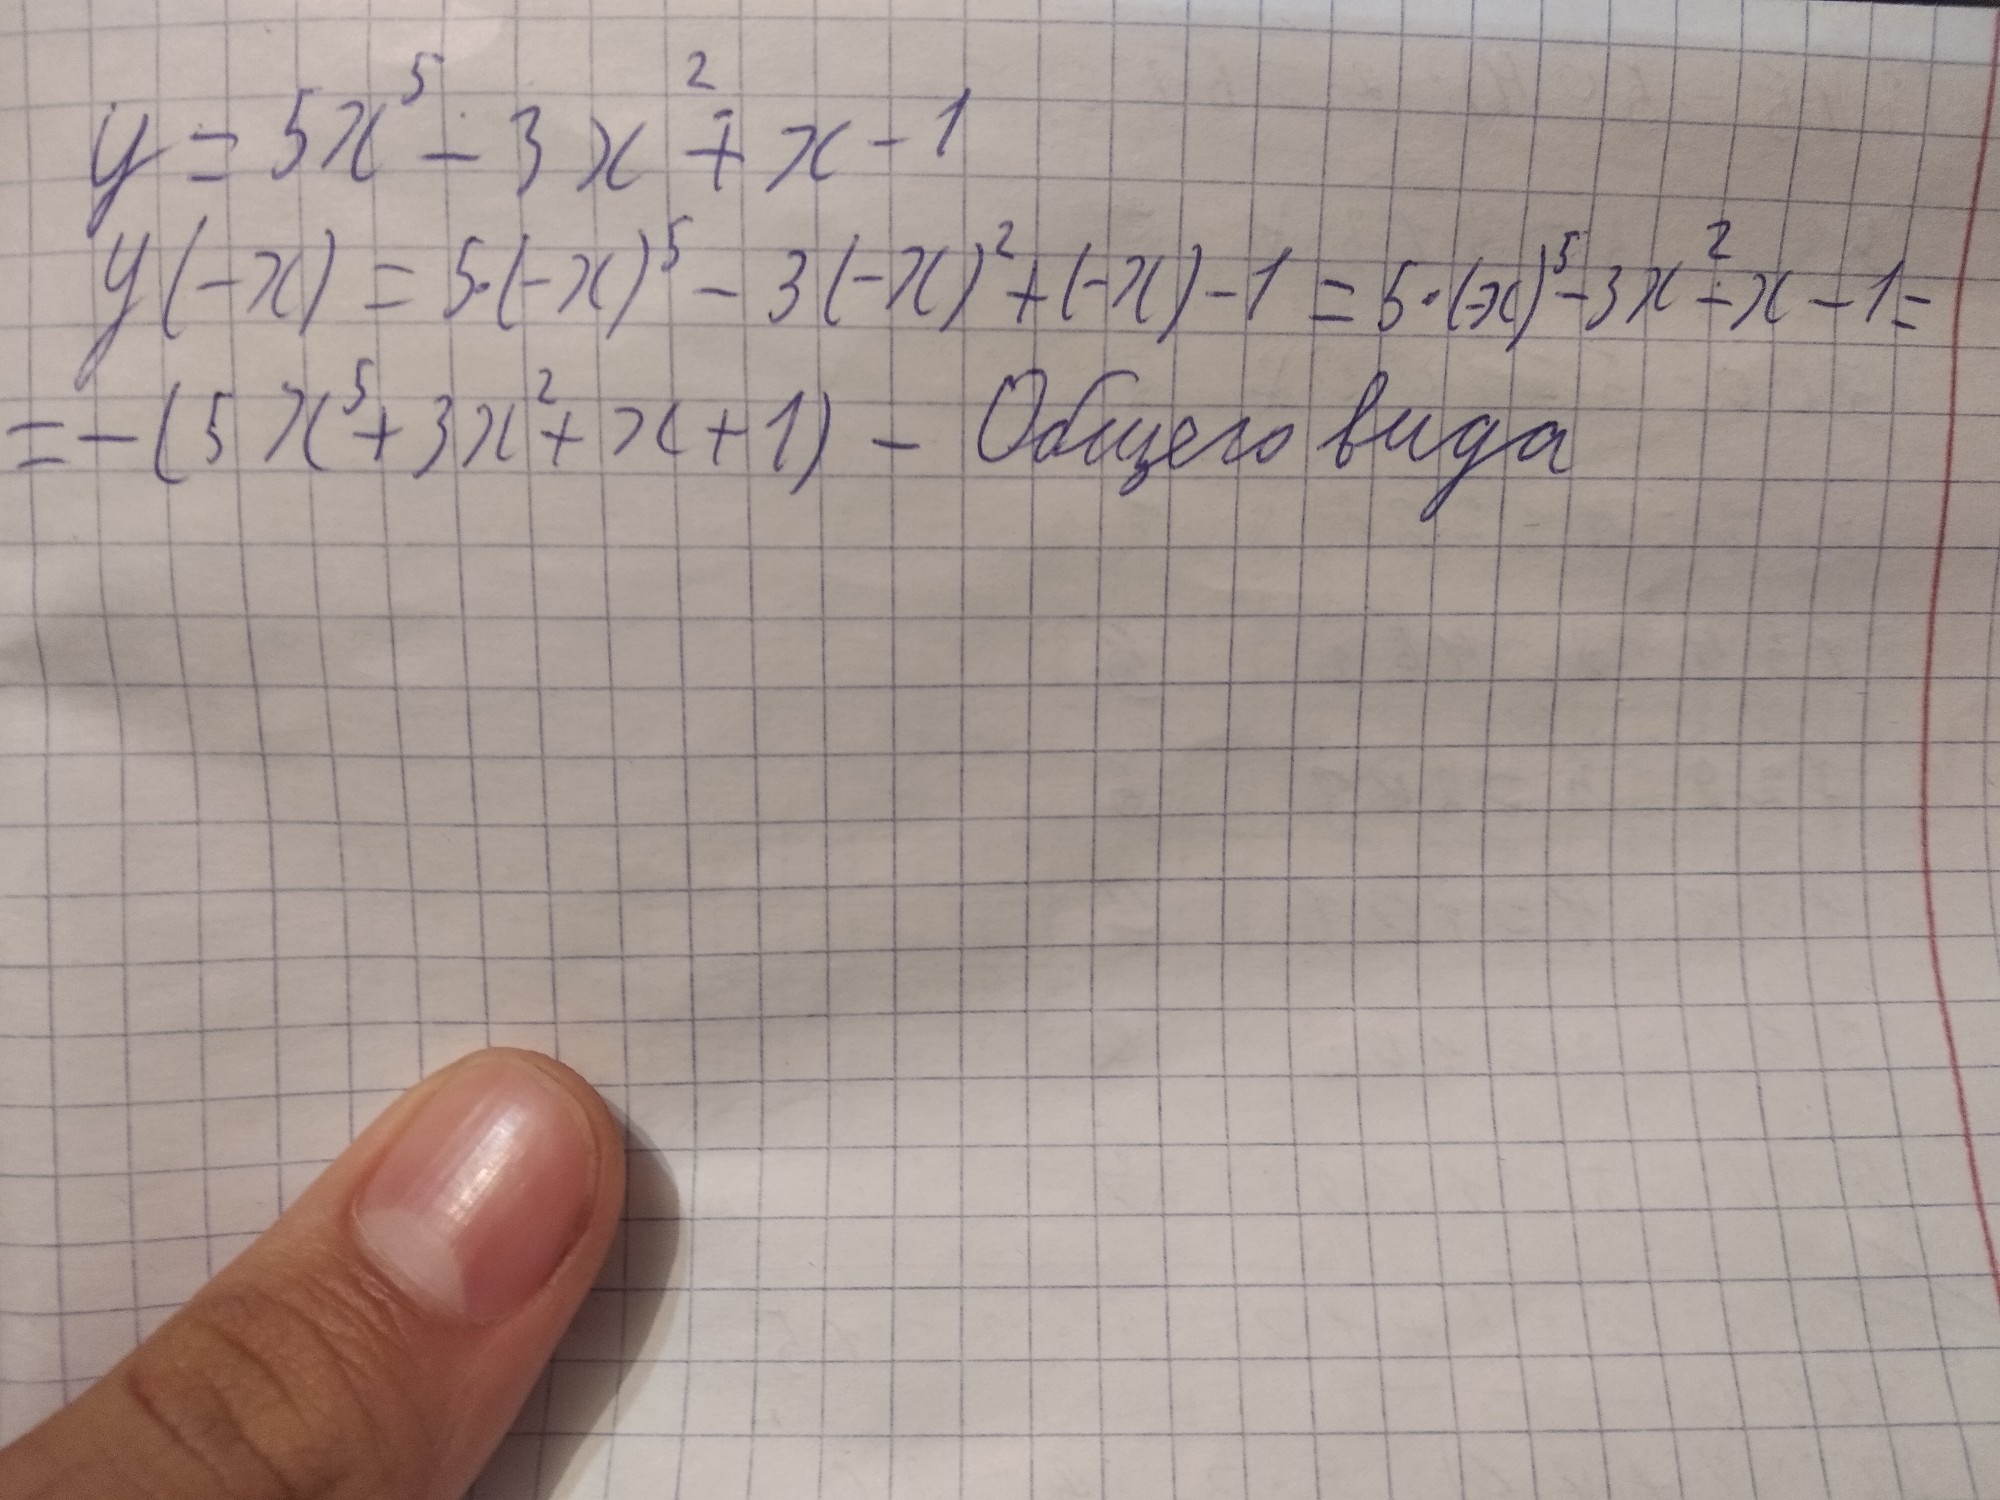 y = 5x⁵ - 3x² + x - 1
y(-x) = 5·(-x)⁵ - 3(-x)² + (-x) - 1 = 5·(-x)⁵ - 3x² - x - 1 =
= -(5x⁵ + 3x² + x + 1) - Общего вида